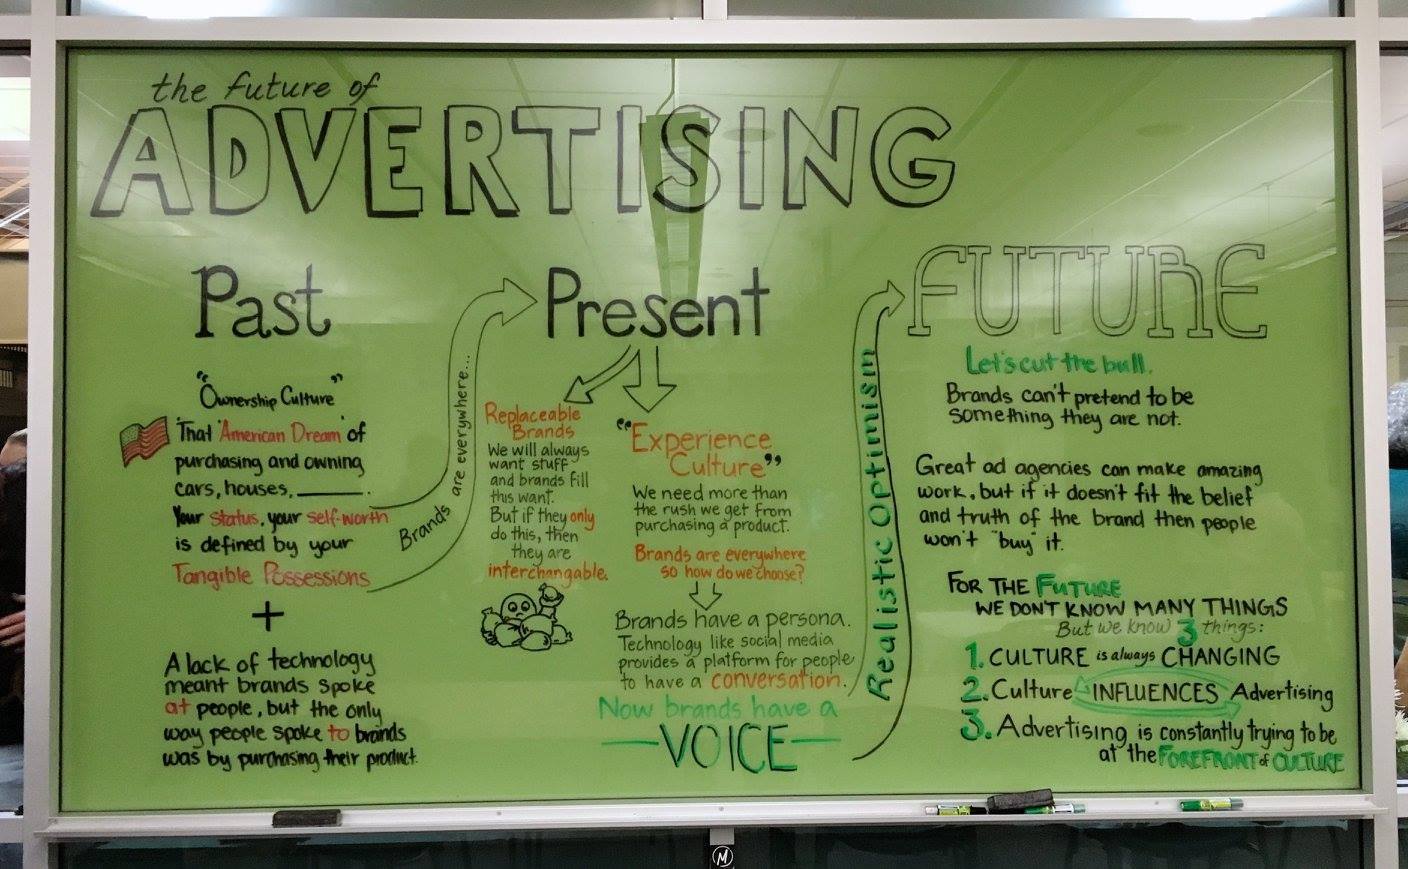 the future of
ADVERTISING
Past
"Ownership Culture"
That 'American Dream' of
purchasing and owning
cars, houses, ______.
Your status, your self-worth
is defined by your
Tangible Possessions
+
A lack of technology
meant brands spoke
at people, but the only
way people spoke to brands
was by purchasing their product.
Brands are everywhere...
Present
Replaceable
Brands
We will always
want stuff
and brands fill
this want.
But if they only
do this, then
they are
interchangable.
"Experience
Culture"
We need more than
the rush we get from
purchasing a product.
Brands are everywhere
so how do we choose?
Brands have a persona.
Technology like social media
provides a platform for people
to have a conversation.
Now brands have a
—VOICE—
Realistic Optimism
FUTURE
Let's cut the bull.
Brands can't pretend to be
something they are not.
Great ad agencies can make amazing
work, but if it doesn't fit the belief
and truth of the brand then people
won't "buy" it.
FOR THE FUTURE
WE DON'T KNOW MANY THINGS
But we know 3 things:
1. CULTURE is always CHANGING
2. Culture INFLUENCES Advertising
3. Advertising is constantly trying to be
at the FOREFRONT of CULTURE
M